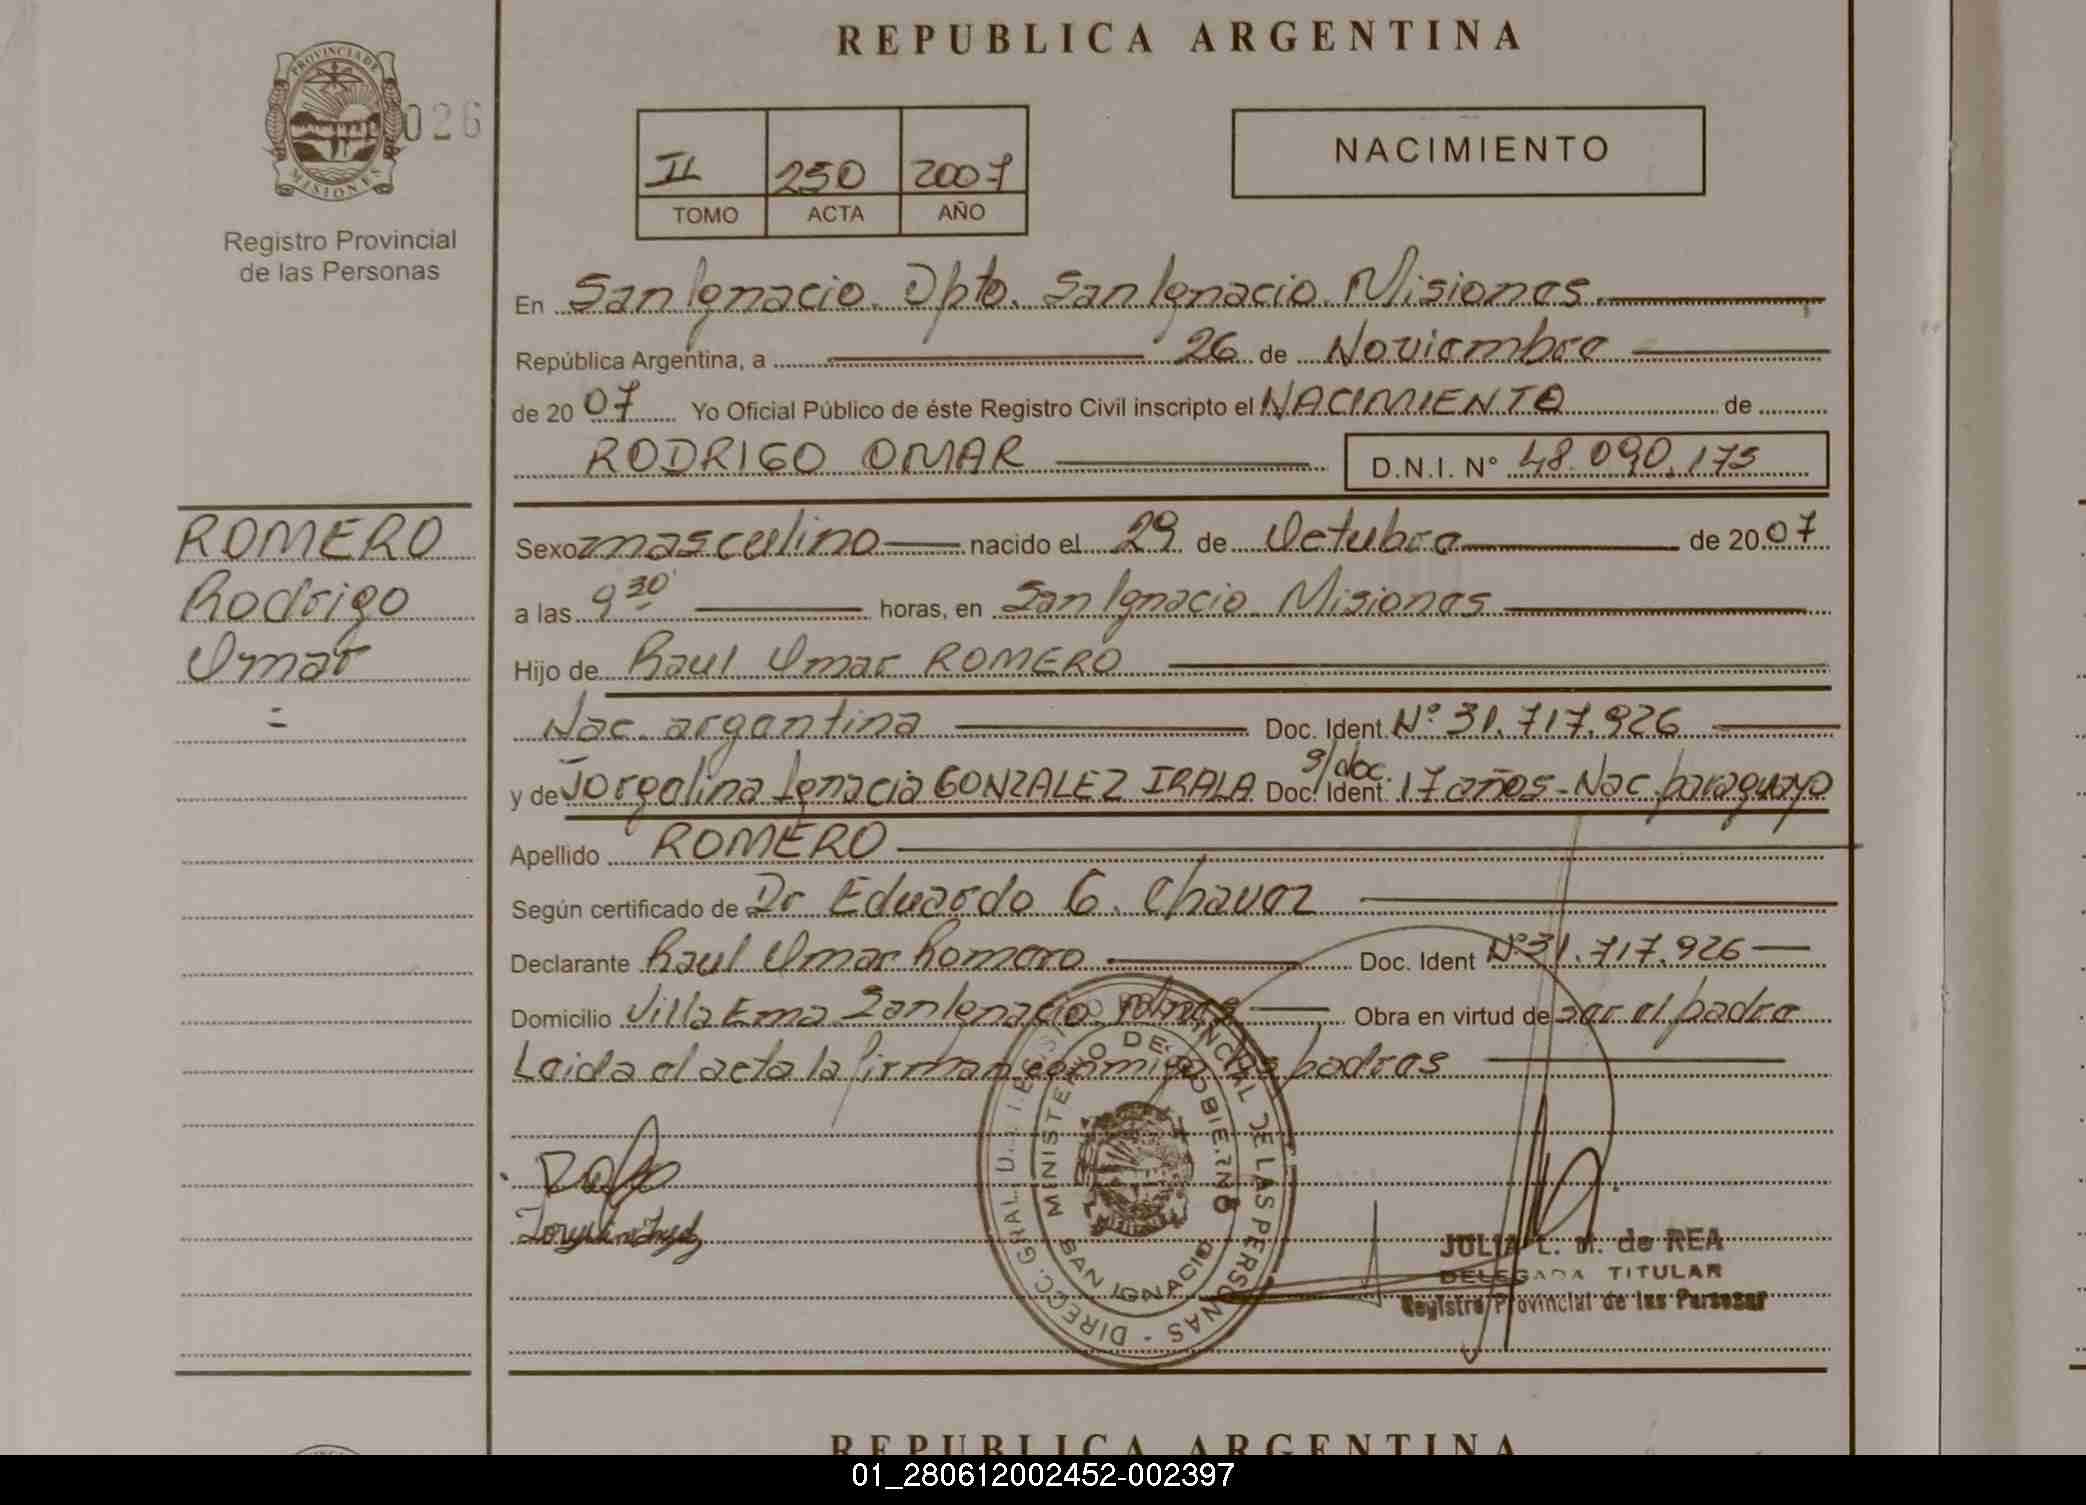 REPUBLICA ARGENTINA
PROVINCIA DE MISIONES
026
Registro Provincial
de las Personas
II 250 2007
TOMO ACTA AÑO
NACIMIENTO
En San Ignacio. Dpto. San Ignacio. Misiones.
República Argentina, a 26 de Noviembre
de 2007 Yo Oficial Público de éste Registro Civil inscripto el NACIMIENTO de
RODRIGO OMAR D.N.I. N° 48.090.175
ROMERO
Rodrigo
Omar
Sexo masculino nacido el 29 de Octubre de 2007
a las 9 30 horas, en San Ignacio. Misiones
Hijo de Raul Omar ROMERO
Nac. argentina Doc. Ident. N° 31.717.926
y de Jorgelina Ignacia GONZALEZ IRALA Doc. Ident. s/doc. 17 años - Nac. paraguaya
Apellido ROMERO
Según certificado de Dr Eduardo G. Chavez
Declarante Raul Omar Romero Doc. Ident N° 31.717.926
Domicilio Villa Ema San Ignacio Mnes Obra en virtud de ser el padre
Leida el acta la firman conmigo los padres
DIRECC. GRAL. DEL REGISTRO PROVINCIAL DE LAS PERSONAS
MINISTERIO DE GOBIERNO
SAN IGNACIO
JULIA L. M. de REA
DELEGADA TITULAR
Registro Provincial de las Personas
REPUBLICA ARGENTINA
01_280612002452-002397